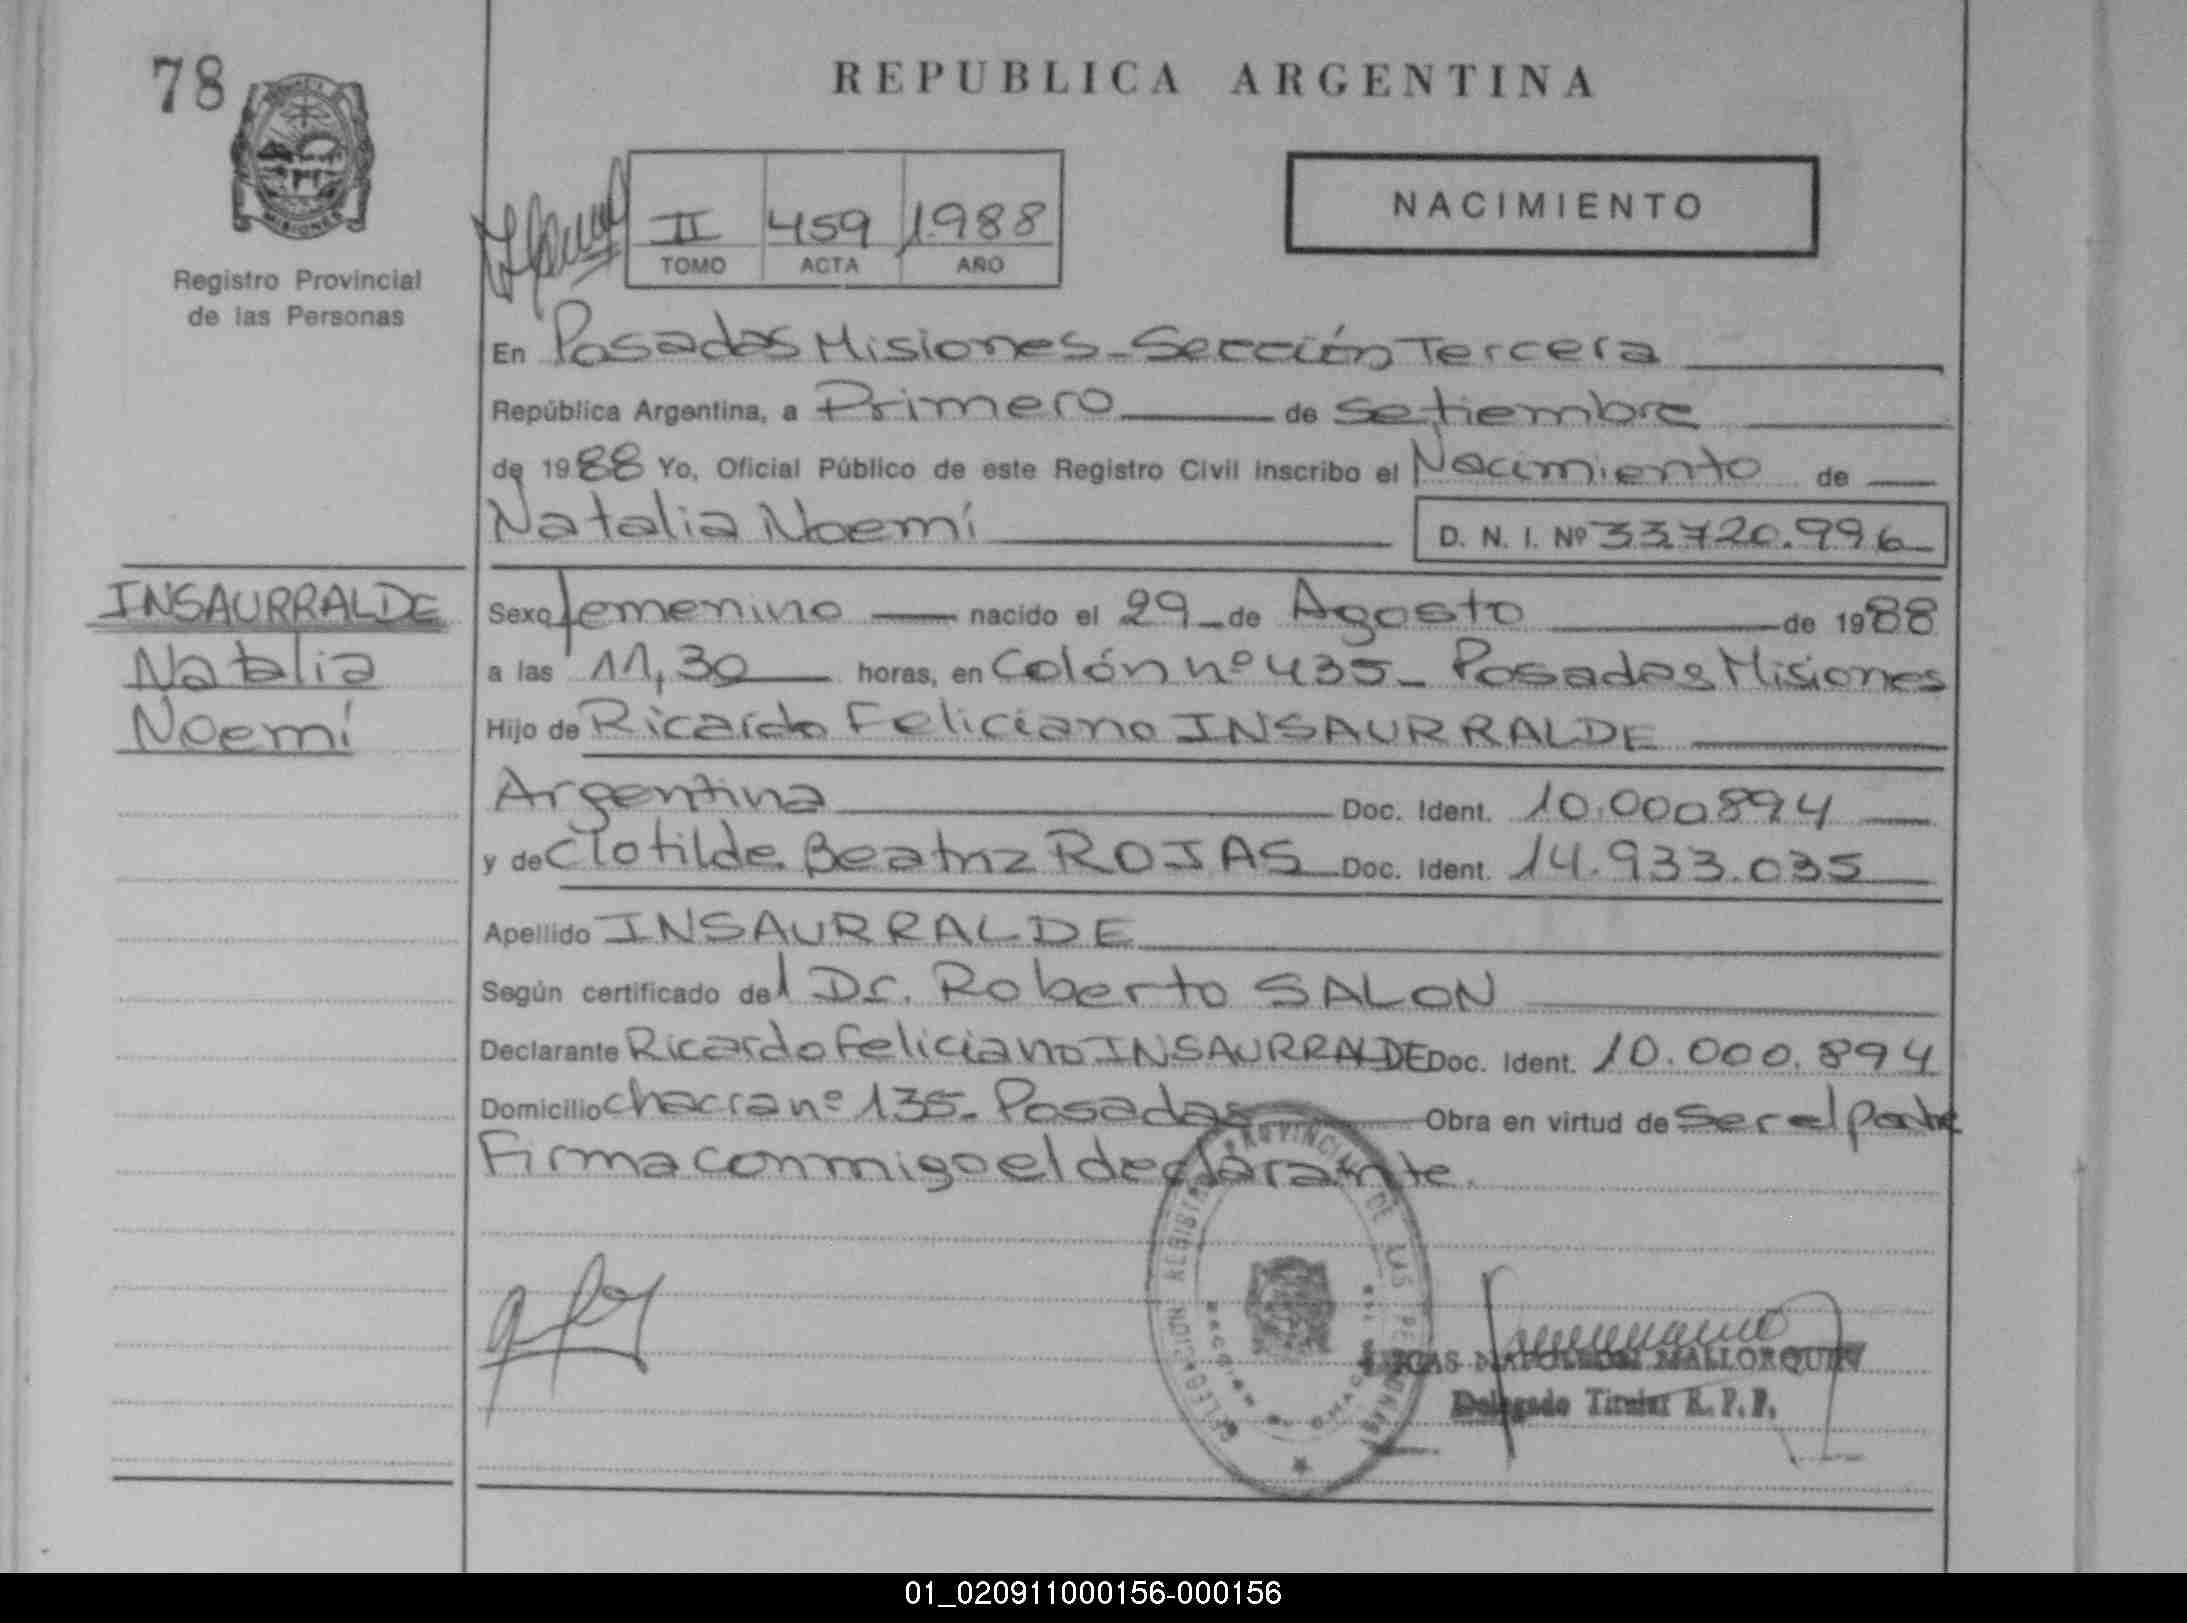 78
REPUBLICA ARGENTINA
NACIMIENTO
II 459 1988
TOMO ACTA AÑO
MISIONES
Registro Provincial
de las Personas
En Posadas Misiones - Sección Tercera
República Argentina, a Primero de Setiembre
de 1988 Yo, Oficial Público de este Registro Civil inscribo el Nacimiento de
Natalia Noemí
D. N. I. Nº 33.720.996
INSAURRALDE
Natalia
Noemí
Sexo femenino nacido el 29 de Agosto de 1988
a las 11,30 horas, en Colón nº 435 - Posadas Misiones
Hijo de Ricardo Feliciano INSAURRALDE
Argentina Doc. Ident. 10.000894
y de Clotilde Beatriz ROJAS Doc. Ident. 14.933.035
Apellido INSAURRALDE
Según certificado del Dr. Roberto SALON
Declarante Ricardo Feliciano INSAURRALDE Doc. Ident. 10.000.894
Domicilio chacra nº 135 - Posadas Obra en virtud de ser el padre
Firma conmigo el declarante.
PROVINCIAL DE LAS
NAPOLEON MALLORQUIN
Delegado Titular R. P. P.
01_020911000156-000156